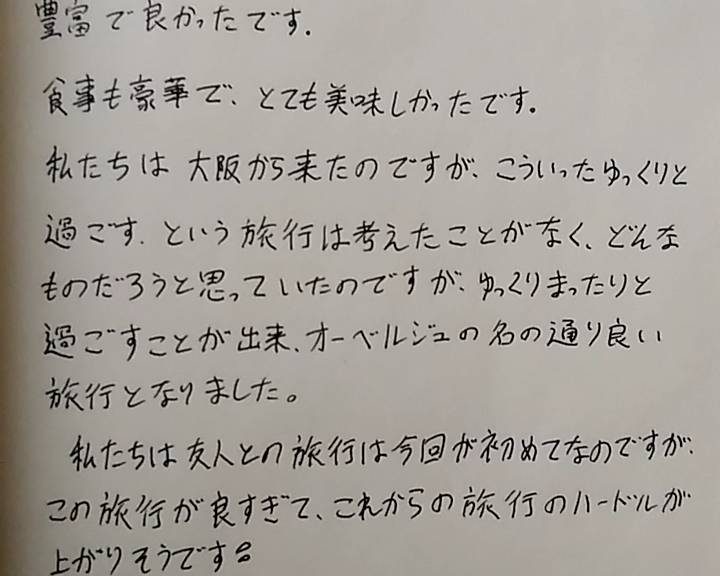 豊富で良かったです.
食事も豪華で、とても美味しかったです。
私たちは大阪から来たのですが、こういったゆっくりと
過ごす、という旅行は考えたことがなく、どんな
ものだろうと思っていたのですが、ゆっくりまったりと
過ごすことが出来、オーベルジュの名の通り良い
旅行となりました。
私たちは友人との旅行は今回が初めてなのですが、
この旅行が良すぎて、これからの旅行のハードルが
上がりそうです